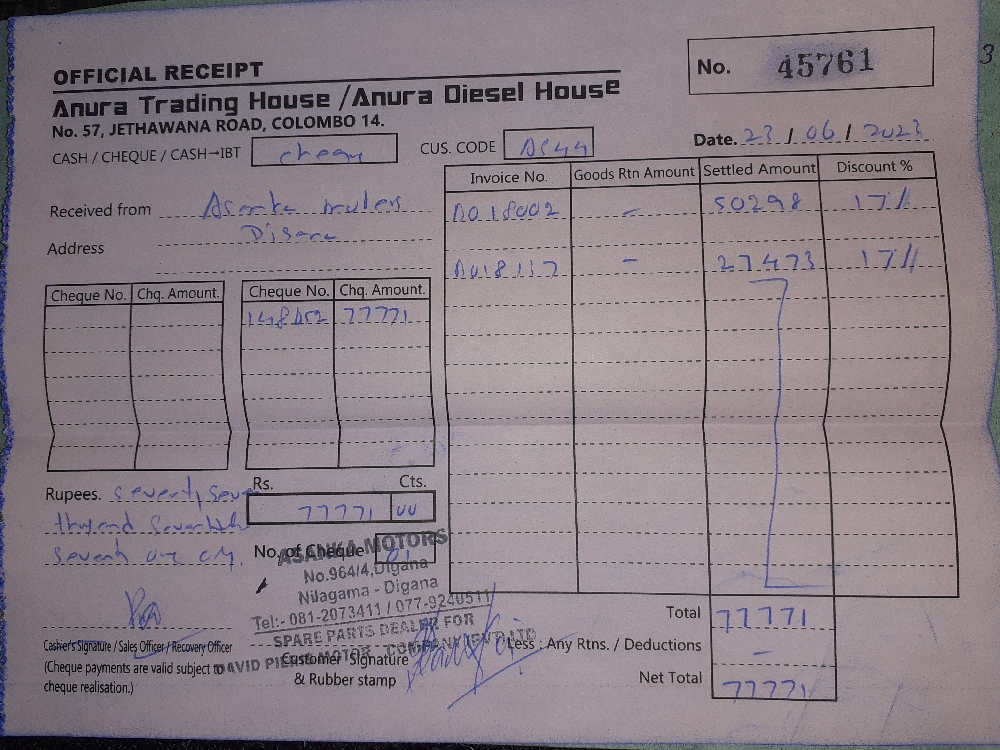 OFFICIAL RECEIPT
No. 45761
Anura Trading House /Anura Diesel House
No. 57, JETHAWANA ROAD, COLOMBO 14.
CASH / CHEQUE / CASH→IBT
CUS. CODE AS44
Date. 23 / 06 / 2023
Invoice No. Goods Rtn Amount Settled Amount Discount %
Received from Asanka
Address
- 50298 17%
- 27473 17%
Cheque No. Chq. Amount. Cheque No. Chq. Amount.
77771
Rs. Cts.
Rupees.
77771 00
seventy one only.
No. of Cheque 01
ASANKA MOTORS
No.964/4,Digana
Nilagama - Digana
Tel:- 081-2073411 / 077-9240511
SPARE PARTS DEALER FOR
DAVID PIERIS MOTOR COMPANY (PVT) LTD
Total 77771
Less : Any Rtns. / Deductions -
Net Total 77771
Cashier's Signature / Sales Officer / Recovery Officer
(Cheque payments are valid subject to
cheque realisation.)
Customer Signature
& Rubber stamp
3